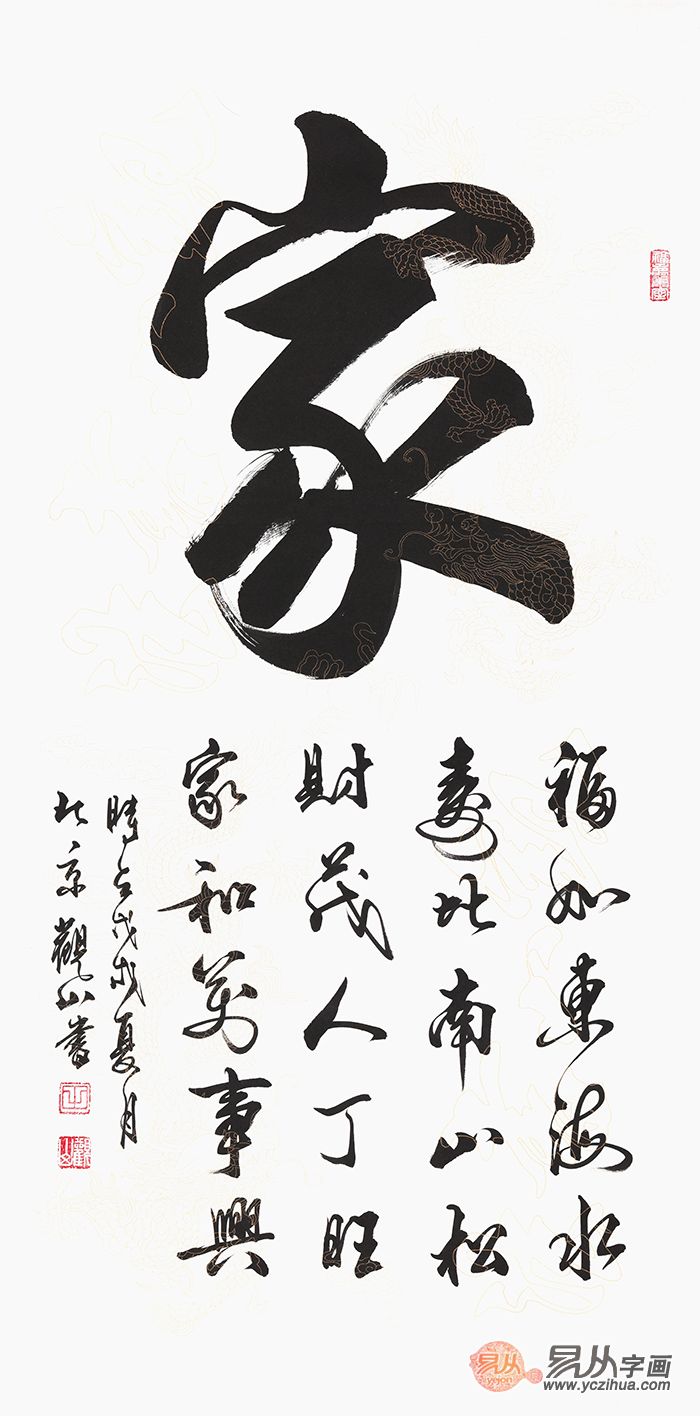 家
福如東海水
壽比南山松
財茂人丁旺
家和萬事興
時在戊戌夏月
北京觀山書
觀山
易从
yejon
易从字画
www.yczihua.com